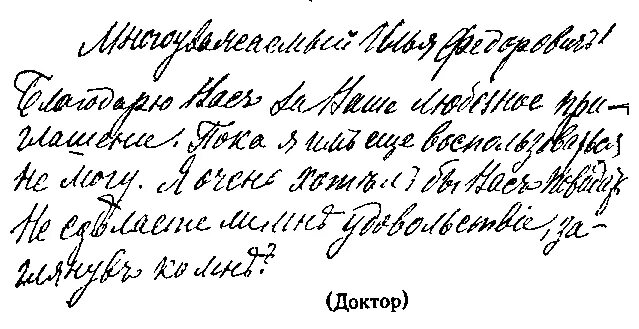 Многоуважаемый Илья Федоровичъ!
Благодарю Васъ за Ваше любезное при-
глашение. Пока я имъ еще воспользоваться
не могу. Я очень хотѣлъ бы Васъ повидать
Не сдѣлаете ли мнѣ удовольствіе, за-
глянувъ ко мнѣ?
(Доктор)